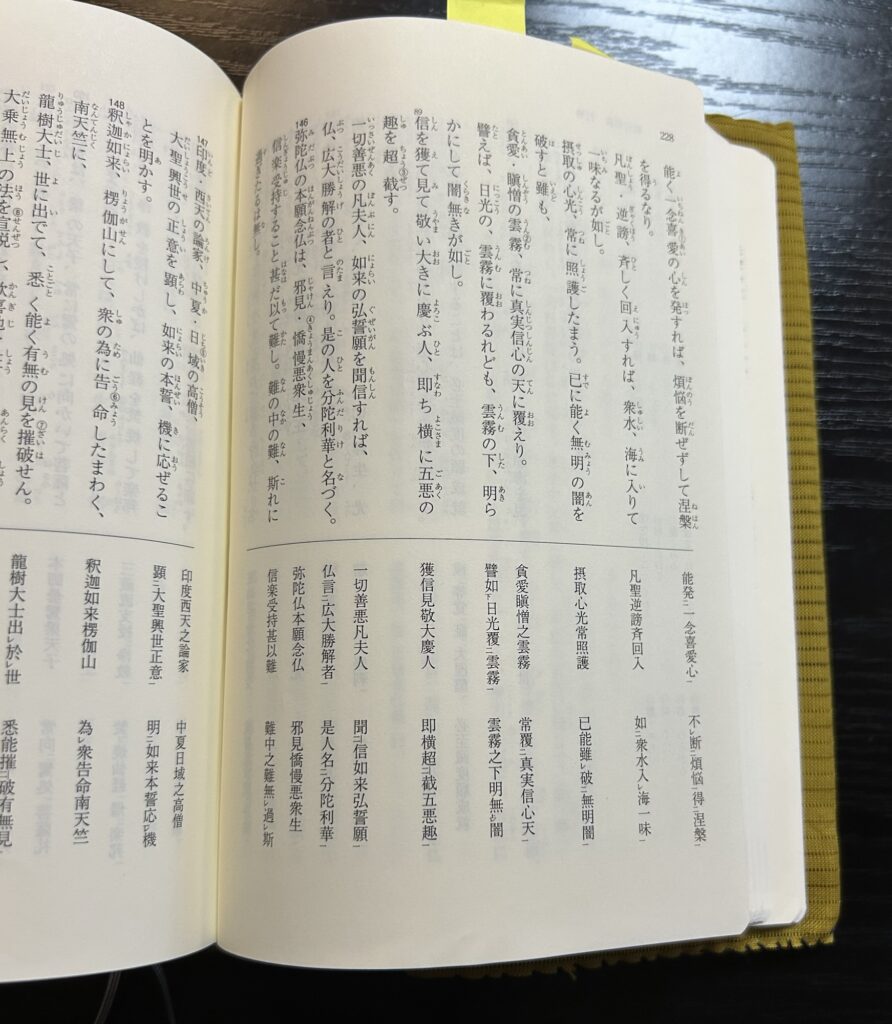 228
能く一念喜愛の心を発すれば、煩悩を断ぜずして涅槃
を得るなり。
凡聖・逆謗、斉しく回入すれば、衆水、海に入りて
一味なるが如し。
摂取の心光、常に照護したまう。已に能く無明の闇を
破すと雖も、
貪愛・瞋憎の雲霧、常に真実信心の天に覆えり。
譬えば、日光の、雲霧に覆わるれども、雲霧の下、明ら
かにして闇無きが如し。
89
信を獲て見て敬い大きに慶ぶ人、即ち横に五悪の
趣を超截す。
一切善悪の凡夫人、如来の弘誓願を聞信すれば、
仏、広大勝解の者と言えり。是の人を分陀利華と名づく。
146
弥陀仏の本願念仏は、邪見・憍慢悪衆生、
信楽受持すること甚だ以て難し。難の中の難、斯れに
過ぎたるは無し。
能発一念喜愛心 不断煩悩得涅槃
凡聖逆謗斉回入 如衆水入海一味
摂取心光常照護 已能雖破無明闇
貪愛瞋憎之雲霧 常覆真実信心天
譬如日光覆雲霧 雲霧之下明無闇
獲信見敬大慶人 即横超截五悪趣
一切善悪凡夫人 聞信如来弘誓願
仏言広大勝解者 是人名分陀利華
弥陀仏本願念仏 邪見憍慢悪衆生
信楽受持甚以難 難中之難無過斯
147
印度、西天の論家、中夏・日域の高僧、
大聖興世の正意を顕し、如来の本誓、機に応ぜるこ
とを明かす。
148
釈迦如来、楞伽山にして、衆の為に告命したまわく、
南天竺に、
龍樹大士、世に出でて、悉く能く有無の見を摧破せん。
大乗無上の法を宣説し、
印度西天之論家 中夏日域之高僧
顕大聖興世正意 明如来本誓応機
釈迦如来楞伽山 為衆告命南天竺
龍樹大士出於世 悉能摧破有無見